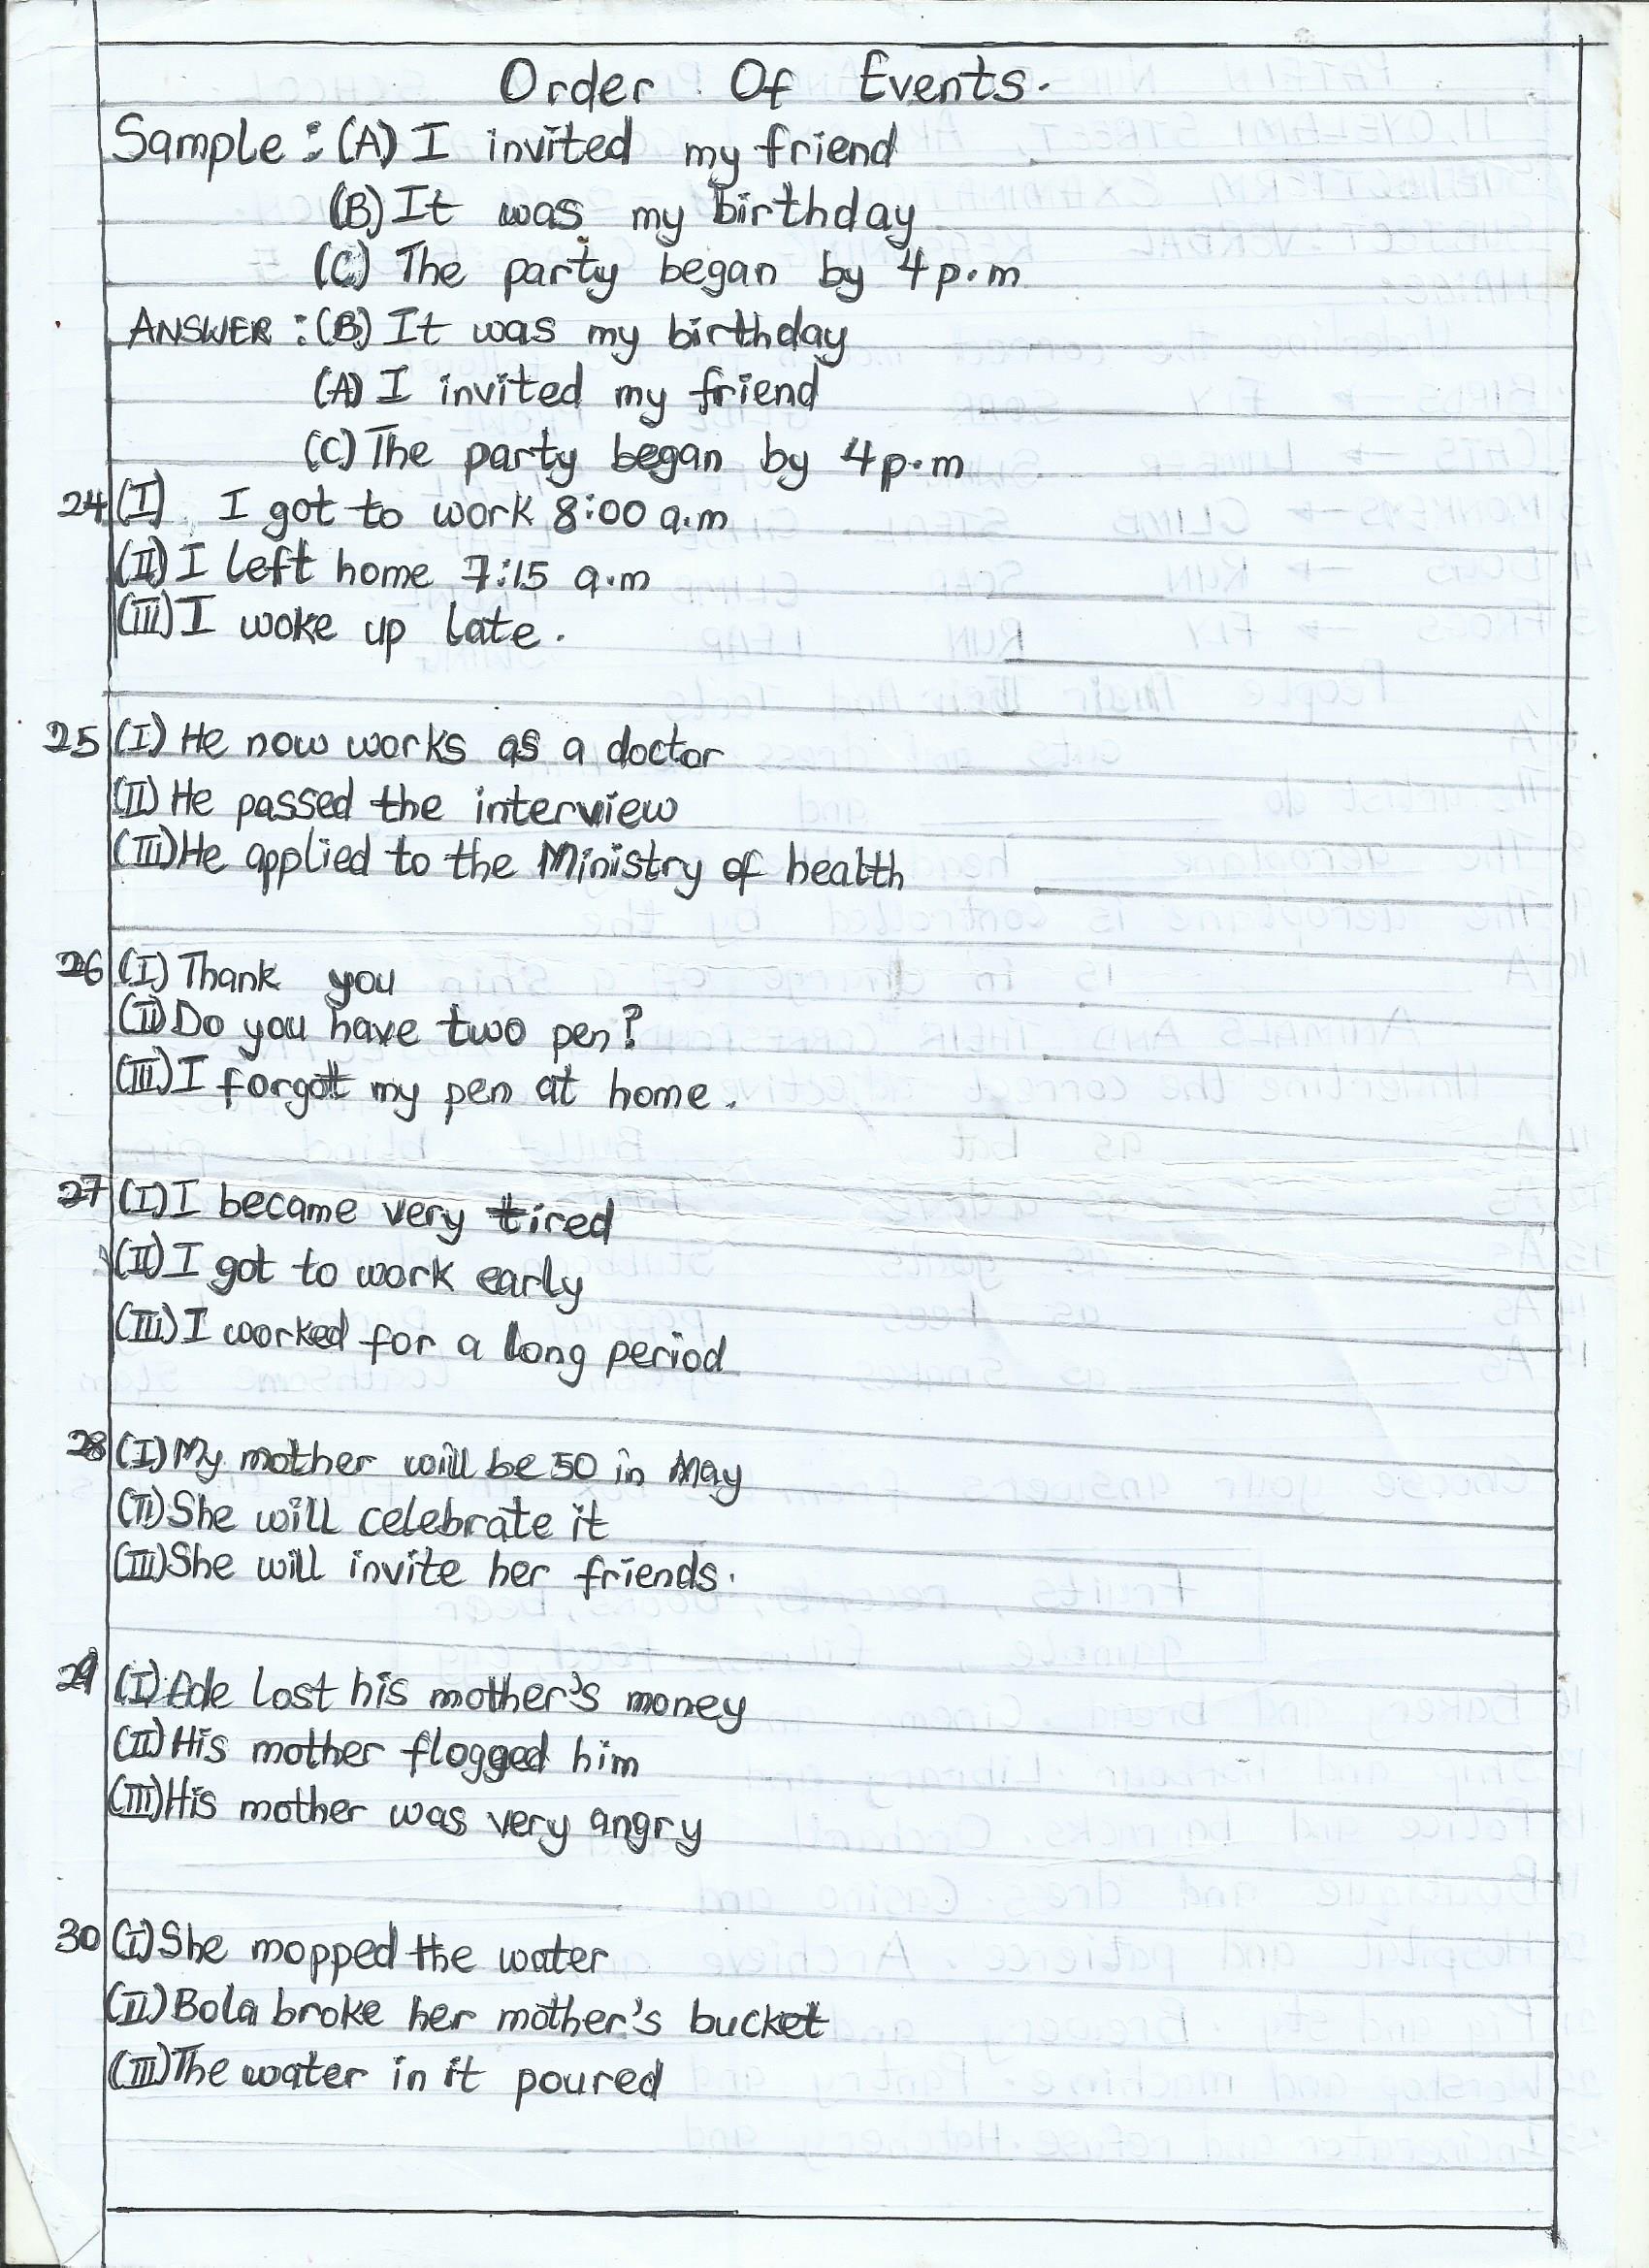 Order Of Events.
Sample: (A) I invited my friend
(B) It was my birthday
(C) The party began by 4p.m
ANSWER: (B) It was my birthday
(A) I invited my friend
(C) The party began by 4p.m
24 (I) I got to work 8:00 a.m
(II) I left home 7:15 a.m
(III) I woke up late.
25 (I) He now works as a doctor
(II) He passed the interview
(III) He applied to the Ministry of health
26 (I) Thank you
(II) Do you have two pen?
(III) I forgott my pen at home.
27 (I) I became very tired
(II) I got to work early
(III) I worked for a long period
28 (I) My mother will be 50 in May
(II) She will celebrate it
(III) She will invite her friends.
29 (I) Ade lost his mother's money
(II) His mother flogged him
(III) His mother was very angry
30 (I) She mopped the water
(II) Bola broke her mother's bucket
(III) The water in it poured